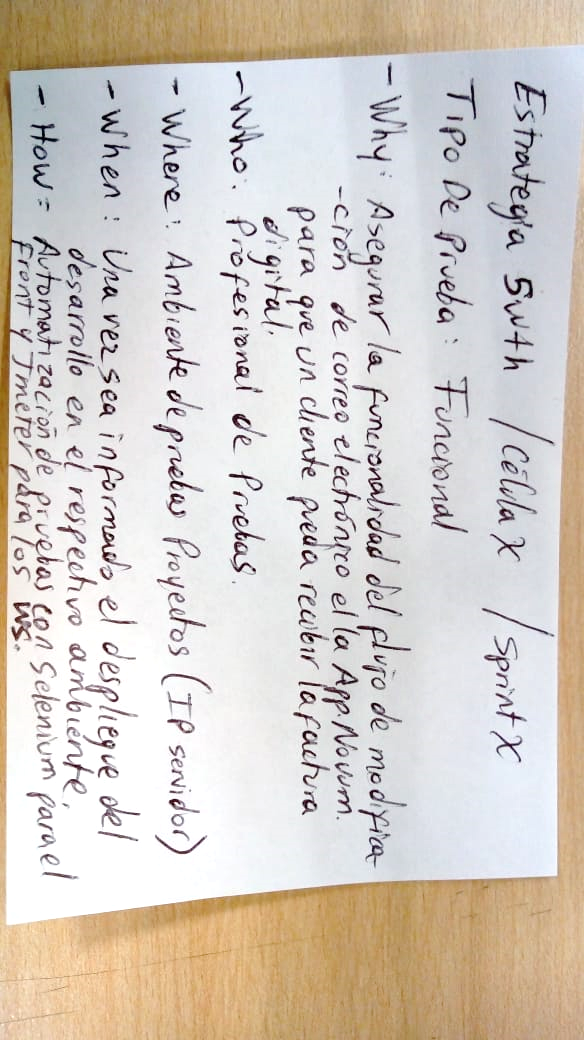 Estrategia 5w+h / Célula X / Sprint X
Tipo De Prueba: Funcional
- Why: Asegurar la funcionalidad del flujo de modifica
-ción de correo electrónico el la App Novum.
para que un cliente pueda recibir la factura
digital.
- Who: Profesional de Pruebas.
- Where: Ambiente de pruebas Proyectos (IP servidor)
- When: Una vez sea informado el despliegue del
desarrollo en el respectivo ambiente.
- How = Automatización de pruebas con Selenium para el
Front y Jmeter para los WS.